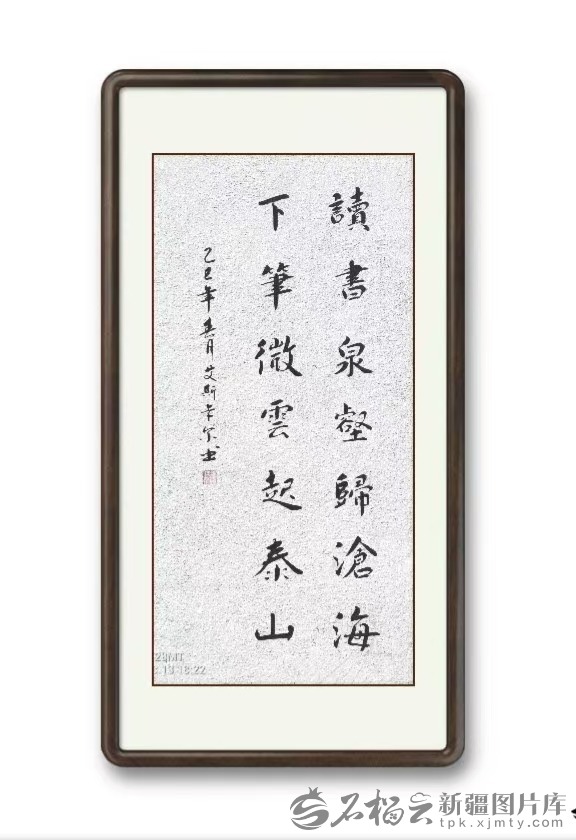 讀書泉壑歸滄海
下筆微雲起泰山
乙巳年春月艾斯卡尔书
23MT
13-16:22
石榴云 新疆图片库
tpk.xjmty.com